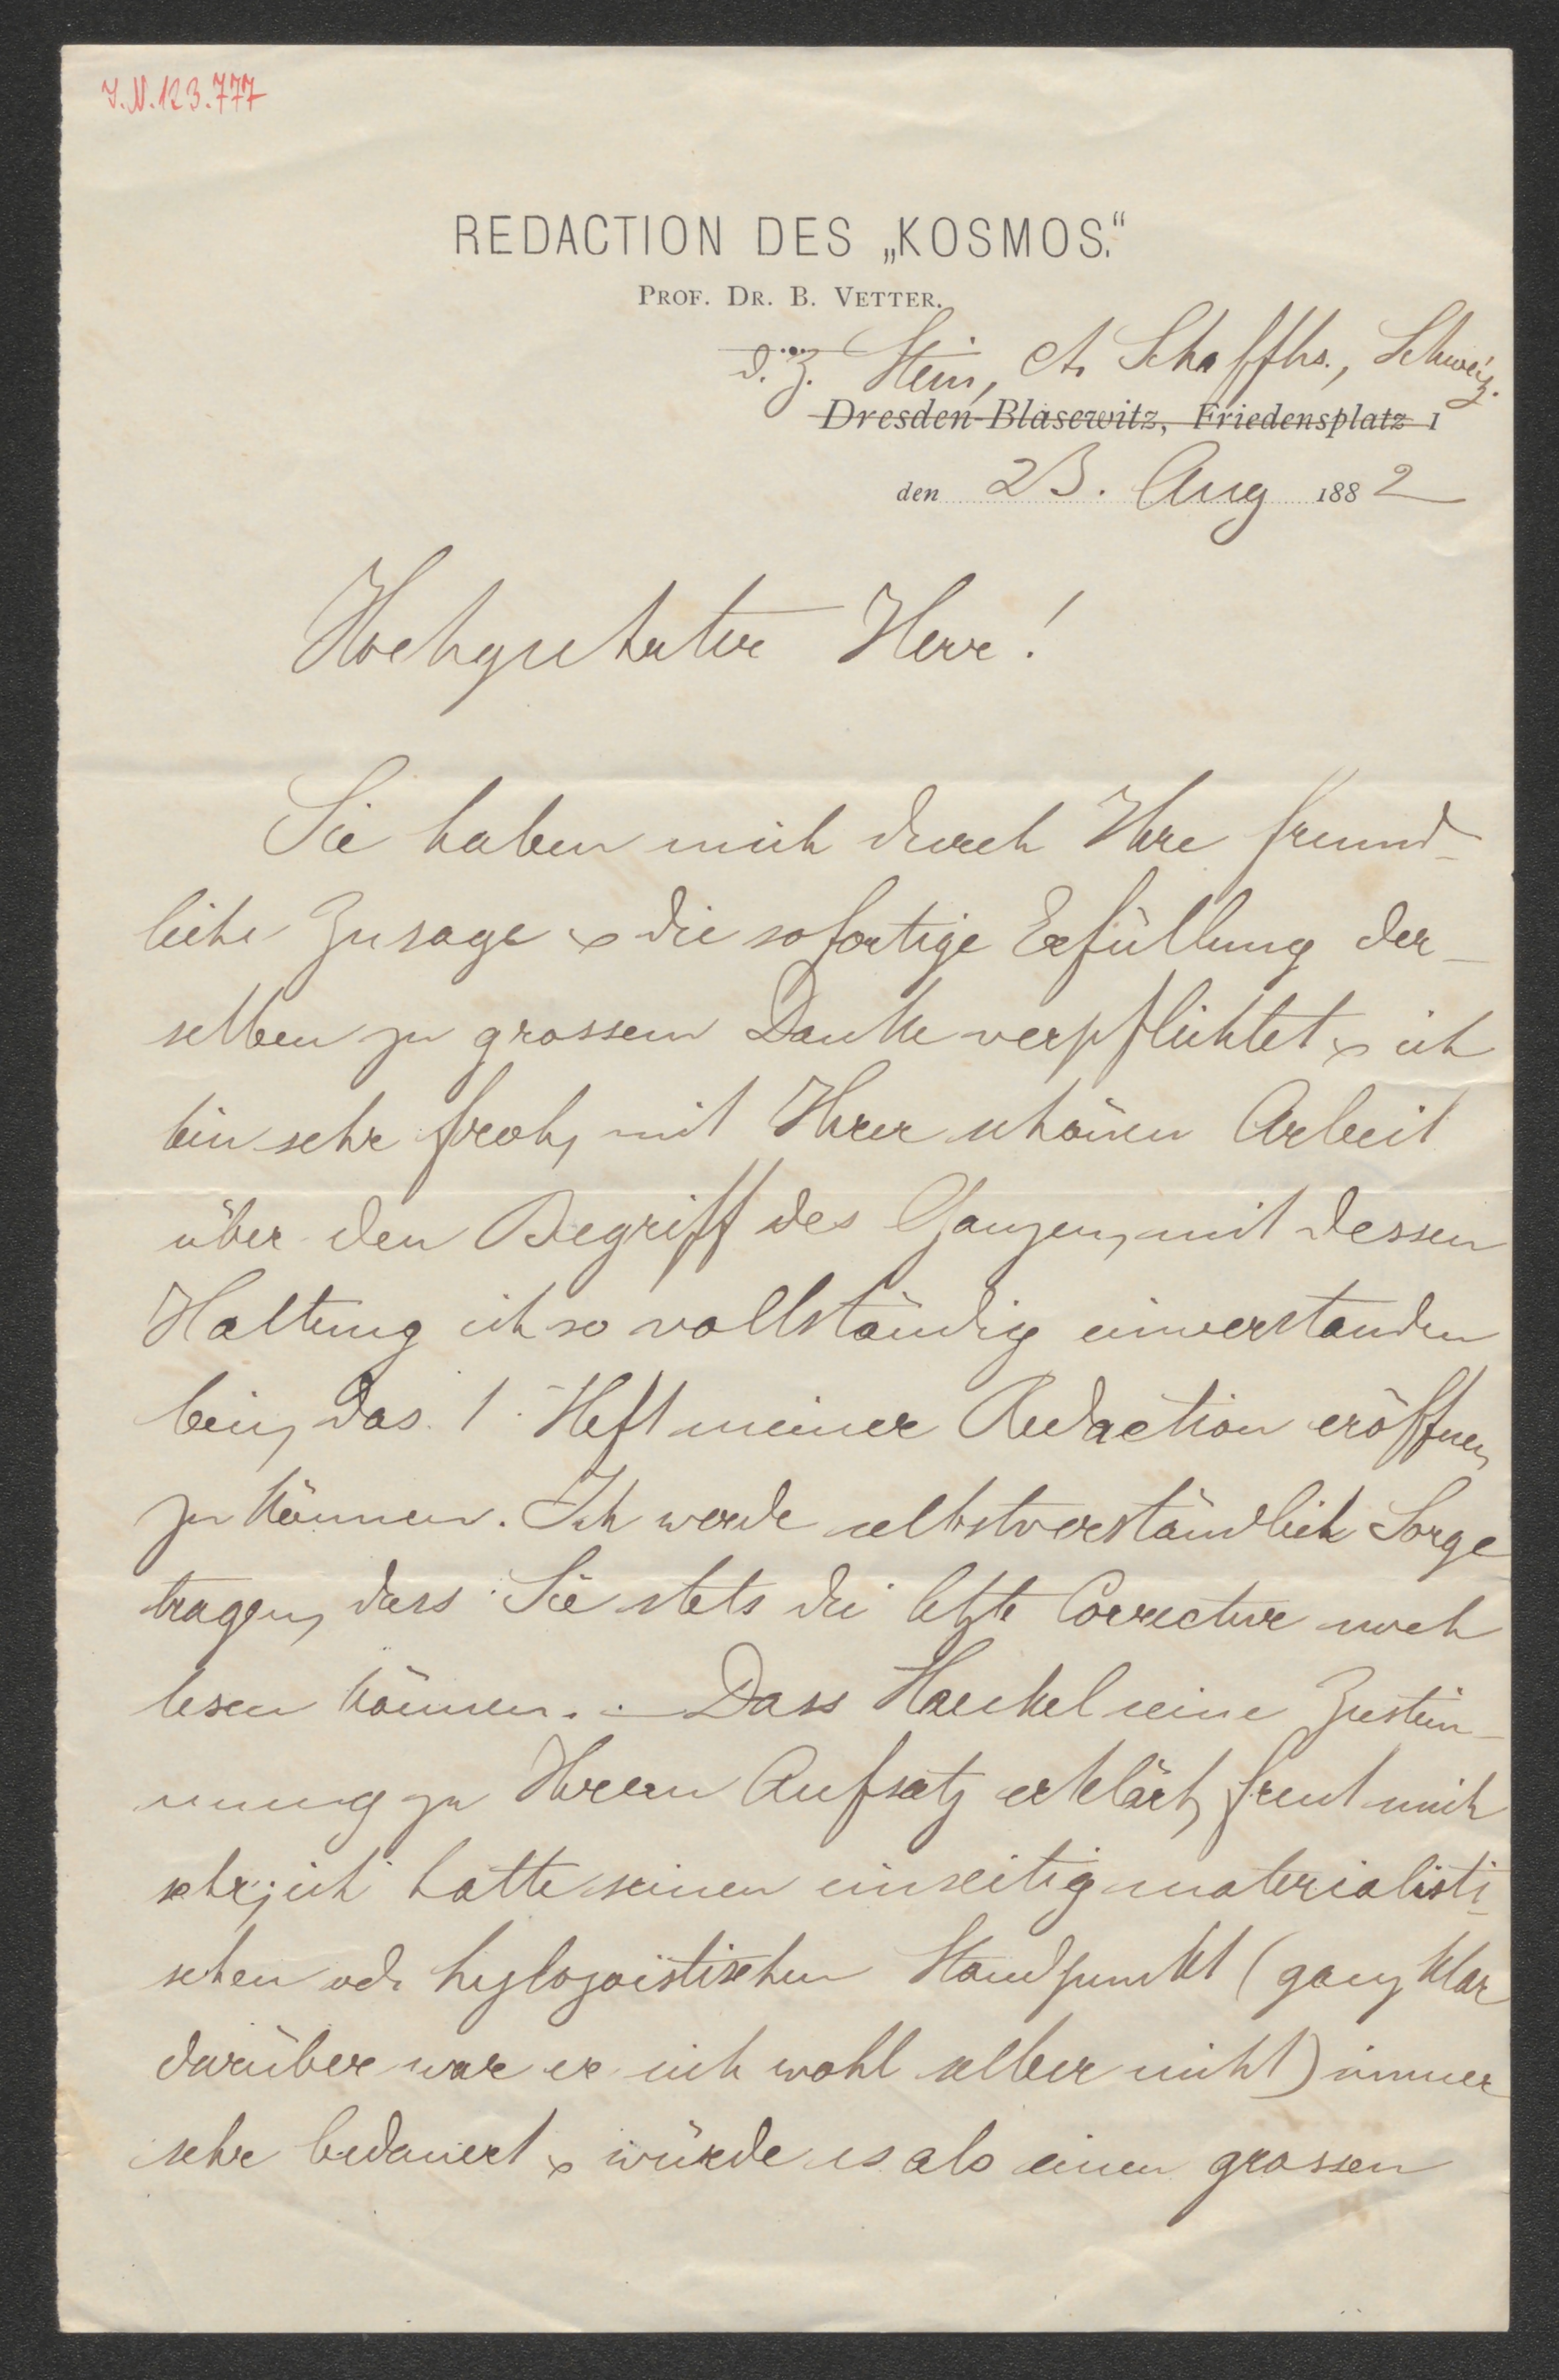 I.N.123.777
REDACTION DES „KOSMOS.“
PROF. DR. B. VETTER.
d. Z. Stein, Ct. Schaffhs., Schweiz.
Dresden-Blasewitz, Friedensplatz 1
den 23. Aug 1882
Hochgeehrter Herr!
Sie haben mich durch Ihre freund-
liche Zusage & die sofortige Erfüllung der-
selben zu grossem Danke verpflichtet & ich
bin sehr froh, mit Ihrer schönen Arbeit
über den Begriff des Ganzen, mit dessen
Haltung ich so vollständig einverstanden
bin, das 1. Heft meiner Redaction eröffnen
zu können. Ich werde selbstverständlich Sorge
tragen, dass Sie stets die letzte Correctur noch
lesen können. – Dass Haeckel seine Zustim-
mung zu Ihrem Aufsatz erklärt, freut mich
sehr; ich hatte seinen einseitig materialisti-
schen od. hylozoistischen Standpunkt (ganz klar
darüber war er sich wohl selber nicht) immer
sehr bedauert & würde es als einen grossen